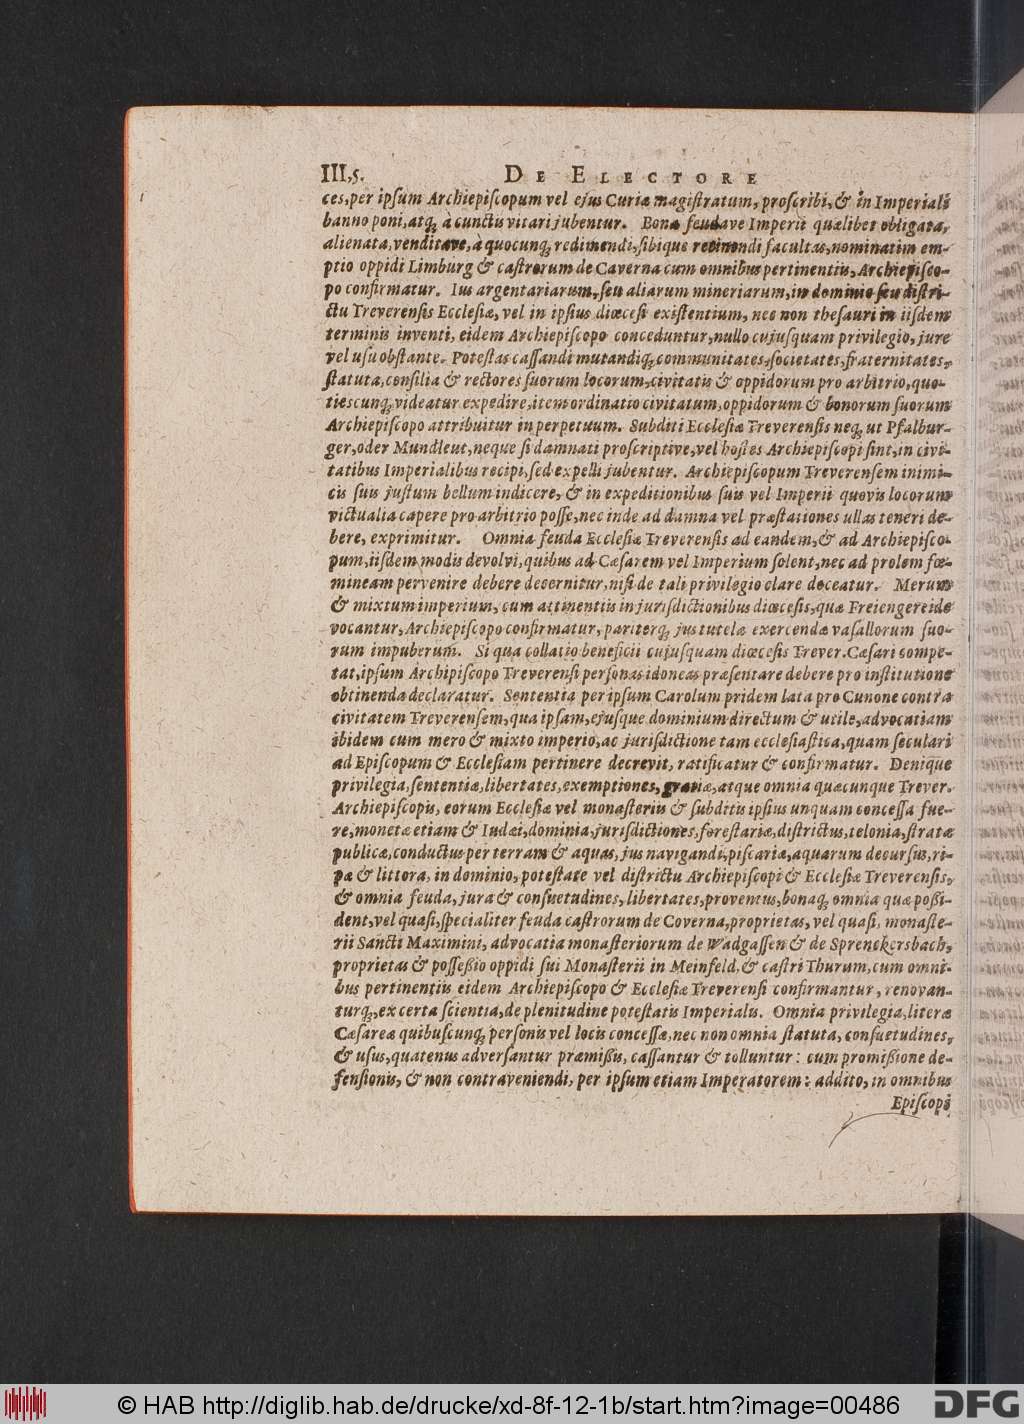 III,5. DE ELECTORE
ces,per ipſum Archiepiſcopum vel ejus Curiæ magiſtratum, proſcribi, & in Imperiali
banno poni, atq; à cunctis vitari jubentur. Bona feudave Imperii quælibet obligata,
alienata, venditave, a quocunq; redimendi, ſibique retinendi facultas, nominatim em-
ptio oppidi Limburg & caſtrorum de Caverna cum omnibus pertinentiis, Archiepiſco-
po confirmatur. Ius argentariarum, ſeu aliarum mineriarum, in dominio ſeu diſtri-
ctu Treverenſis Eccleſiæ, vel in ipſius diœceſi exiſtentium, nec non theſauri in iiſdem
terminis inventi, eidem Archiepiſcopo conceduntur, nullo cujuſquam privilegio, jure
vel uſu obſtante. Poteſtas caſſandi mutandiq; communitates, ſocietates, fraternitates,
ſtatuta, conſilia & rectores ſuorum locorum, civitatis & oppidorum pro arbitrio, quo-
tiescunq; videatur expedire, item ordinatio civitatum, oppidorum & bonorum ſuorum
Archiepiſcopo attribuitur in perpetuum. Subditi Eccleſiæ Treverenſis neq; ut Pfalbur-
ger, oder Mundleut, neque ſi damnati proſcriptive, vel hoſtes Archiepiſcopi ſint, in civi-
tatibus Imperialibus recipi, ſed expelli jubentur. Archiepiſcopum Treverenſem inimi-
cis ſuis juſtum bellum indicere, & in expeditionibus ſuis vel Imperii quovis locorum
victualia capere pro arbitrio poſſe, nec inde ad damna vel præſtationes ullas teneri de-
bere, exprimitur. Omnia feuda Eccleſiæ Treverenſis ad eandem, & ad Archiepiſco-
pum, iiſdem modis devolvi, quibus ad Cæſarem vel Imperium ſolent, nec ad prolem fœ-
mineam pervenire debere decernitur, niſi de tali privilegio clare doceatur. Merum
& mixtum imperium, cum attinentiis in juriſdictionibus diœceſis, quæ Freiengereide
vocantur, Archiepiſcopo confirmatur, pariterq; jus tutelæ exercendæ vaſallorum ſuo-
rum impuberum. Si qua collatio beneficii cujuſquam diœceſis Trever. Cæſari compe-
tat, ipſum Archipiſcopo Treverenſi perſonas idoneas præſentare debere pro inſtitutione
obtinenda declaratur. Sententia per ipſum Carolum pridem lata pro Cunone contra
civitatem Treverenſem, qua ipſam, ejuſque dominium directum & utile, advocatiam
ibidem cum mero & mixto imperio, ac jurisdictione tam eccleſiaſtica, quam ſeculari
ad Epiſcopum & Eccleſiam pertinere decrevit, ratificatur & confirmatur. Denique
privilegia, ſententiæ, libertates, exemptiones, gratiæ, atque omnia quæcunque Trever.
Archiepiſcopis, eorum Eccleſiæ vel monaſteriis & ſubditis ipſius unquam conceſſa fue-
re, monetæ etiam & Iudæi, dominia, juriſdictiones, foreſtariæ, diſtrictus, telonia, ſtratæ
publicæ, conductus per terram & aquas, jus navigandi, piſcariæ, aquarum decurſus, ri-
pæ & littora, in dominio, poteſtate vel diſtrictu Archiepiſcopi & Eccleſiæ Treverenſis,
& omnia feuda, jura & conſuetudines, libertates, proventus, bonaq; omnia quæ poßi-
dent, vel quaſi, ſpecialiter feuda caſtrorum de Coverna, proprietas, vel quaſi, monaſte-
rii Sancti Maximini, advocatia monaſteriorum de Wadgaſſen & de Sprenckersbach,
proprietas & poſſeßio oppidi ſui Monaſterii in Meinfeld, & caſtri Thurum, cum omni-
bus pertinentiis eidem Archiepiſcopo & Eccleſiæ Treverenſi confirmantur, renovan-
turq;, ex certa ſcientia, de plenitudine poteſtatis Imperialis. Omnia privilegia, literæ
Cæſareæ quibuſcunq; perſonis vel locis conceſſæ, nec non omnia ſtatuta, conſuetudines,
& uſus, quatenus adverſantur præmißis, caſſantur & tolluntur: cum promißione de-
fenſionis, & non contraveniendi, per ipſum etiam Imperatorem: addito, in omnibus
Epiſcopi
© HAB http://diglib.hab.de/drucke/xd-8f-12-1b/start.htm?image=00486
DFG